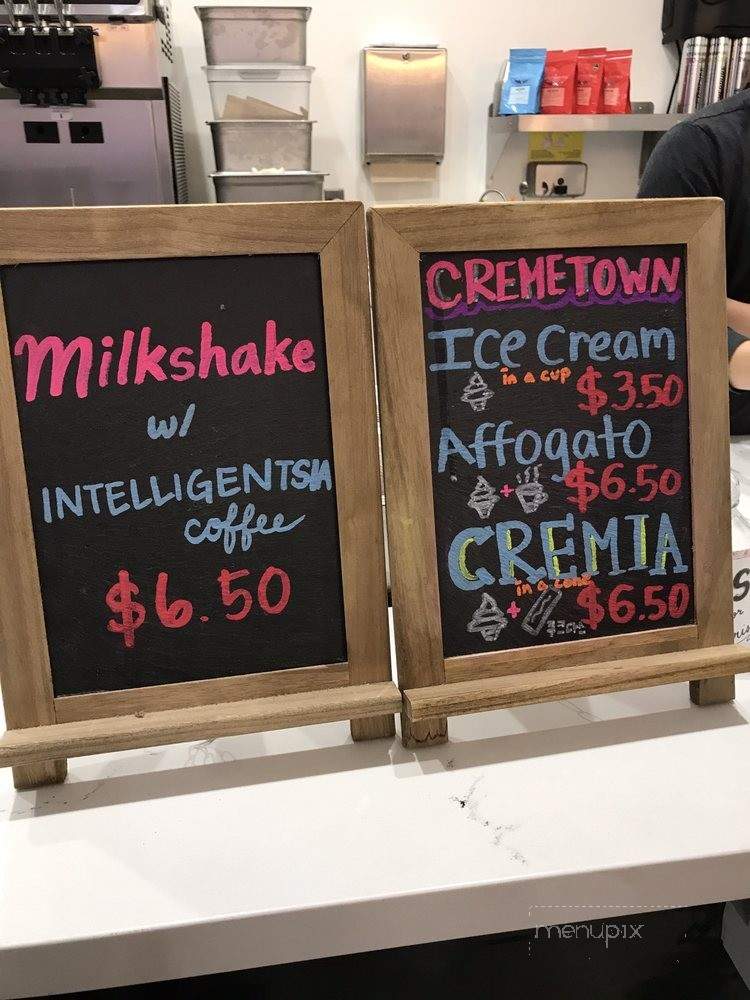 Milkshake
w/
INTELLIGENTSIA
coffee
$6.50
CREMETOWN
Ice Cream
in a cup
$3.50
Affogato
$6.50
CREMIA
in a cone
$6.50
menupix